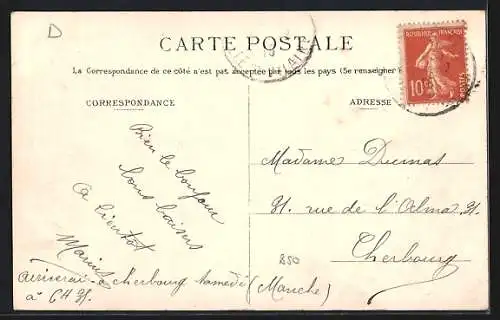 D
CARTE POSTALE
La Correspondance de ce côté n'est pas acceptée par tous les pays (Se renseigner
REPUBLIQUE FRANÇAISE
10c
POSTES
CORRESPONDANCE
ADRESSE
Bien le bonjour
bons baisers
a bientôt
Marius
Arriverai à Cherbourg Samedi
à 6 H 31.
Madame Dumas
31. rue de l'Alma 31.
Cherbourg
(Manche)
850